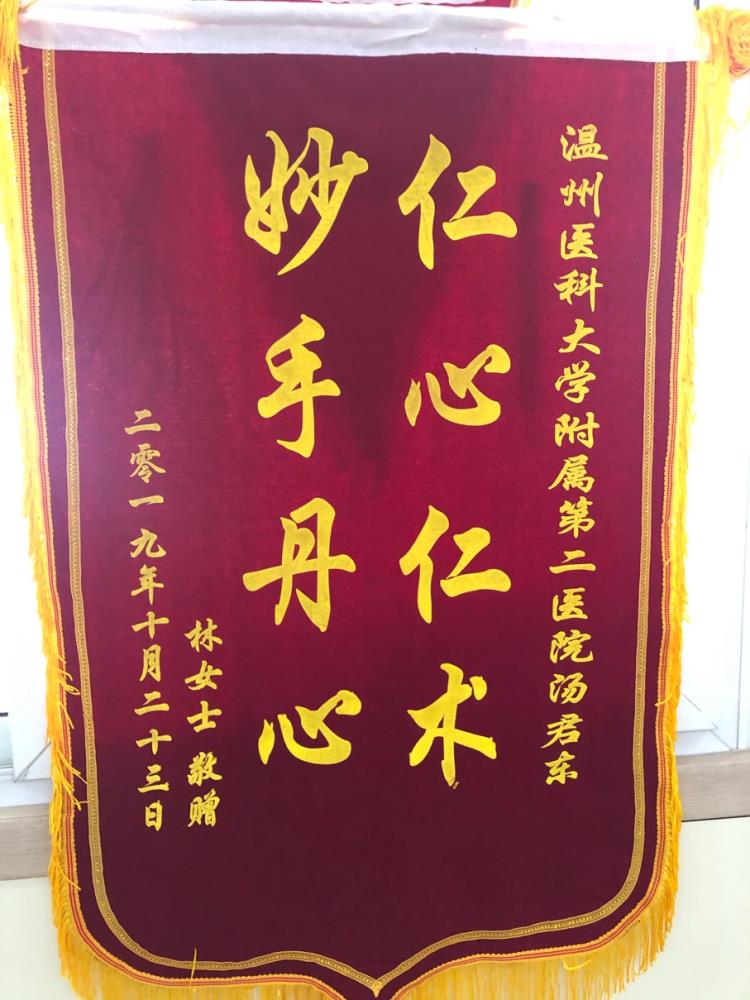 温州医科大学附属第二医院汤君东
仁心仁术
妙手丹心
林女士 敬赠
二零一九年十月二十三日